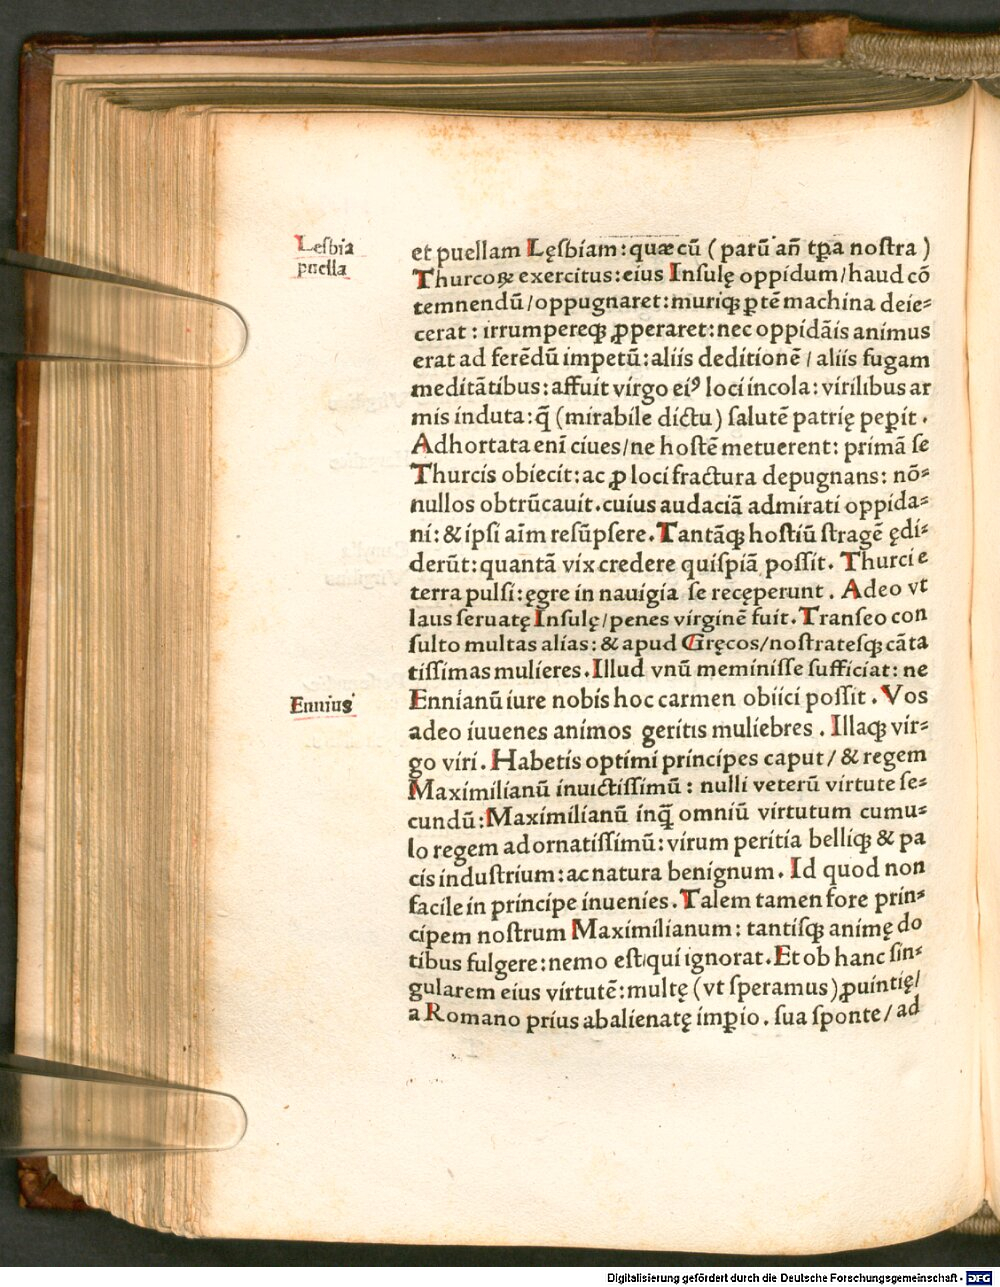 Lesbia
puella
et puellam Lęsbiam: quæ cū ( parū añ tꝑa nostra )
Thurcoꝝ exercitus: eius Insulę oppidum/haud cō
temnendū/oppugnaret: muriqꝫ ꝑtē machina deie⸗
cerat: irrumpereqꝫ ꝓperaret: nec oppidāis animus
erat ad ferēdū impetū: aliis deditionē / aliis fugam
meditātibus: affuit virgo eiꝰ loci incola: virilibus ar
mis induta: q̄ (mirabile dictu) salutē patrię peꝑit.
Adhortata enī ciues/ne hostē metuerent: primā se
Thurcis obiecit: ac ꝓ loci fractura depugnans: nō⸗
nullos obtrūcauit. cuius audaciā admirati oppida⸗
ni: & ipsi aīm resūpsere. Tantāqꝫ hostiū stragē ędi⸗
derūt: quantā vix credere quispiā possit. Thurci e
terra pulsi: ęgre in nauigia se recęperunt. Adeo vt
laus seruatę Insulę/penes virginē fuit. Transeo con
sulto multas alias: & apud Gręcos/nostratesqꝫ cāta
tissimas mulieres. Illud vnū meminisse sufficiat: ne
Ennius
Ennianū iure nobis hoc carmen obiici possit. Vos
adeo iuuenes animos geritis muliebres. Illaqꝫ vir⸗
go viri. Habetis optimi principes caput/ & regem
Maximilianū inuictissimū: nulli veterū virtute se⸗
cundū: Maximilianū inq̄ omniū virtutum cumu⸗
lo regem adornatissimū: virum peritia belliqꝫ & pa
cis industrium: ac natura benignum. Id quod non
facile in principe inuenies. Talem tamen fore prin⸗
cipem nostrum Maximilianum: tantisqꝫ animę do
tibus fulgere: nemo est qui ignorat. Et ob hanc sin⸗
gularem eius virtutē: multę (vt speramus) ꝓuintię/
a Romano prius abalienatę imꝑio. sua sponte/ ad
Digitalisierung gefördert durch die Deutsche Forschungsgemeinschaft - DFG